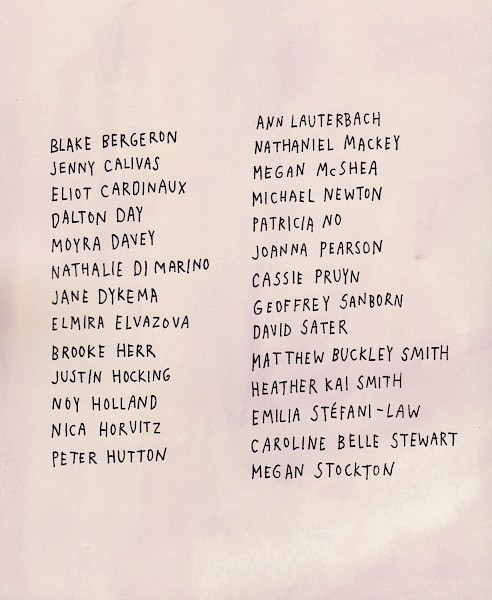 BLAKE BERGERON
JENNY CALIVAS
ELIOT CARDINAUX
DALTON DAY
MOYRA DAVEY
NATHALIE DI MARINO
JANE DYKEMA
ELMIRA ELVAZOVA
BROOKE HERR
JUSTIN HOCKING
NOY HOLLAND
NICA HORVITZ
PETER HUTTON
ANN LAUTERBACH
NATHANIEL MACKEY
MEGAN McSHEA
MICHAEL NEWTON
PATRICIA NO
JOANNA PEARSON
CASSIE PRUYN
GEOFFREY SANBORN
DAVID SATER
MATTHEW BUCKLEY SMITH
HEATHER KAI SMITH
EMILIA STÉFANI-LAW
CAROLINE BELLE STEWART
MEGAN STOCKTON